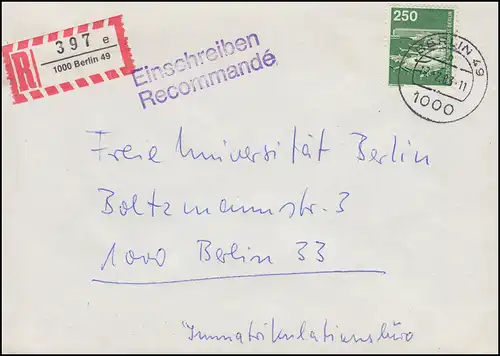 R 397 e
1000 Berlin 49
Einschreiben
Recommandé
250
BERLIN
BERLIN 49
1000
Freie Universität Berlin
Boltzmannstr. 3
1000 Berlin 33
Immatrikulationsbüro